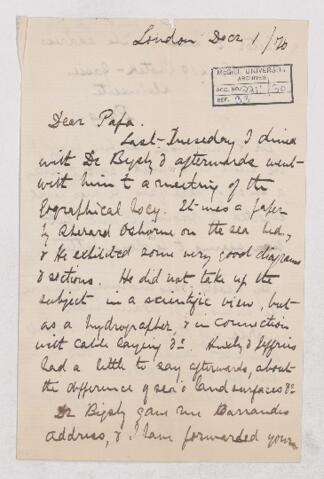 London Decr 1/70
McGILL UNIVERSITY
ARCHIVES
ACC. NO.
REF. 33
Dear Papa.
Last Tuesday I dined
with Dr Bigsby & afterwards went
with him to a meeting of the
Geographical Socy. It was a paper
by Sherard Osborne on the sea bed,
& He exhibited some very good diagrams
& sections. He did not take up the
subject in a scientific view, but
as a hydrographer, & in connection
with cable laying &c. Huxley & Jeffries
had a little to say afterwards, about
the difference of sea & land surfaces &c
Dr Bigsby gave me Barrandes
address, & I have forwarded yours